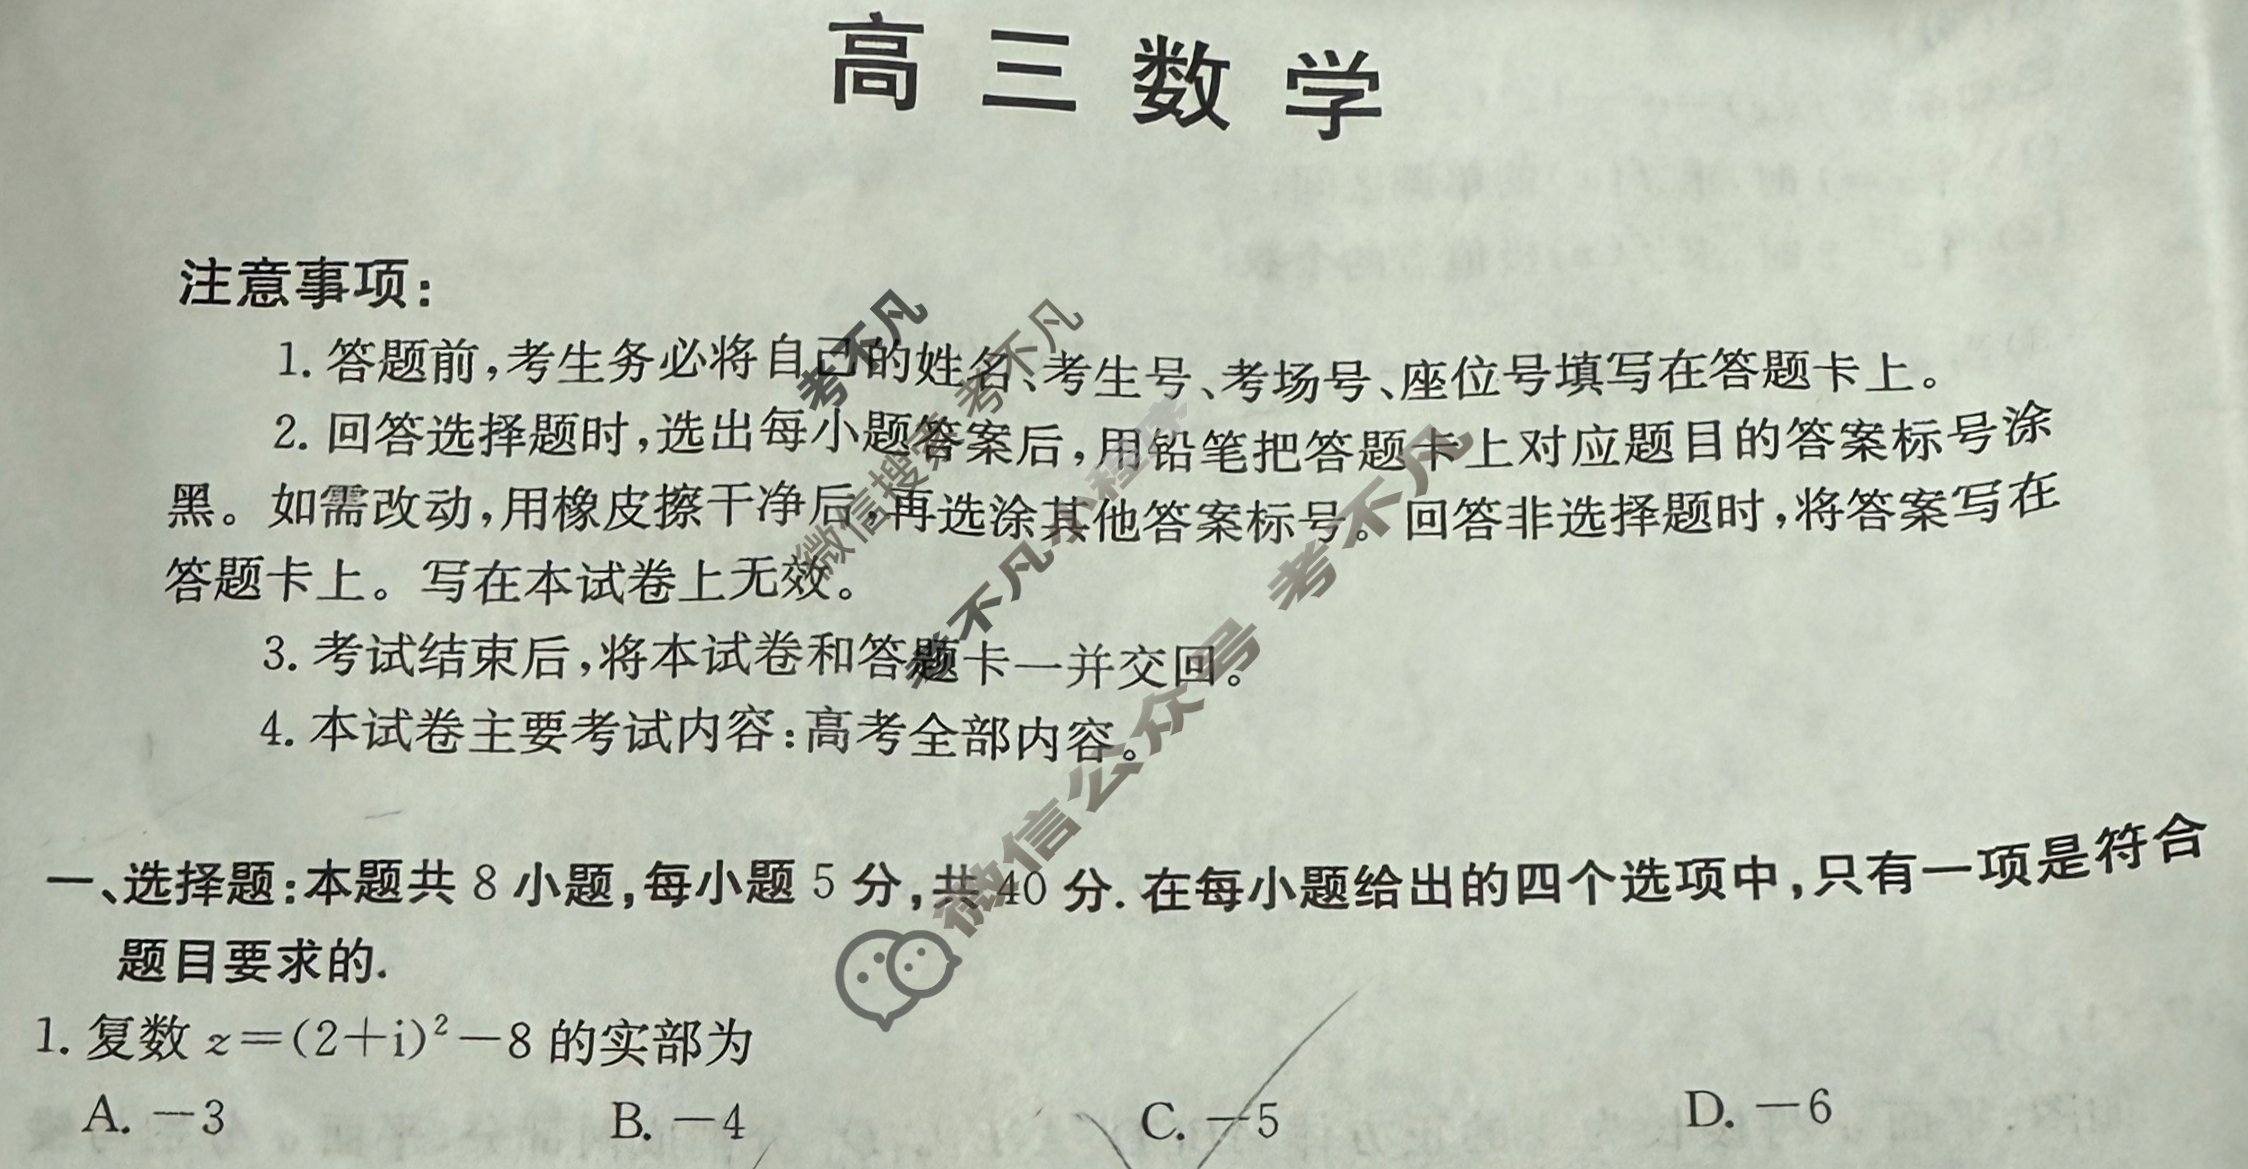 高三数学
注意事项：
1. 答题前，考生务必将自己的姓名、考生号、考场号、座位号填写在答题卡上。
2. 回答选择题时，选出每小题答案后，用铅笔把答题卡上对应题目的答案标号涂
黑。如需改动，用橡皮擦干净后，再选涂其他答案标号。回答非选择题时，将答案写在
答题卡上。写在本试卷上无效。
3. 考试结束后，将本试卷和答题卡一并交回。
4. 本试卷主要考试内容：高考全部内容。
考不凡
微信搜索 考不凡
考不凡小程序
微信公众号 考不凡
一、选择题：本题共 8 小题，每小题 5 分，共 40 分. 在每小题给出的四个选项中，只有一项是符合
题目要求的.
1. 复数 z=(2+i)²-8 的实部为
A. -3 B. -4 C. -5 D. -6